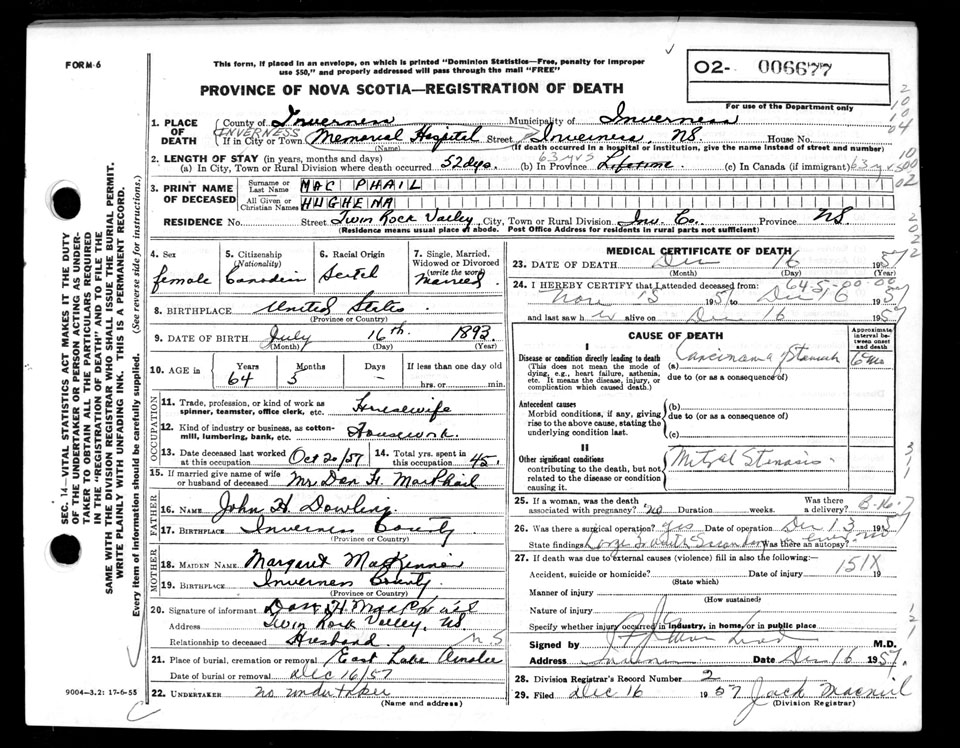 FORM-6
This form, if placed in an envelope, on which is printed "Dominion Statistics—Free, penalty for improper
use $50," and properly addressed will pass through the mail "FREE"
02- 006677
PROVINCE OF NOVA SCOTIA—REGISTRATION OF DEATH
For use of the Department only
1. PLACE OF DEATH County of Inverness Municipality of Inverness
INVERNESS
If in City or Town Memorial Hospital Street Inverness NS House No.
(Name) (If death occurred in a hospital or institution, give the name instead of street and number)
2. LENGTH OF STAY (in years, months and days) 63 yrs
(a) In City, Town or Rural Division where death occurred 52 dys. (b) In Province Lifetime. (c) In Canada (if immigrant) 63 yrs
3. PRINT NAME OF DECEASED Surname or Last Name MAC PHAIL
All Given or Christian Names HUGHENA
RESIDENCE No. Street Twin Rock Valley, City, Town or Rural Division Inv. Co. Province NS
(Residence means usual place of abode. Post Office Address for residents in rural parts not sufficient)
4. Sex female
5. Citizenship (Nationality) Canadian
6. Racial Origin
7. Single, Married, Widowed or Divorced (write the word) Married
8. BIRTHPLACE United States
(Province or Country)
9. DATE OF BIRTH July 16th 1893
(Month) (Day) (Year)
10. AGE in Years 64 Months 5 Days — If less than one day old
hrs. or min.
OCCUPATION
11. Trade, profession, or kind of work as spinner, teamster, office clerk, etc. Housewife
12. Kind of industry or business, as cotton-mill, lumbering, bank, etc. Housework.
13. Date deceased last worked at this occupation Oct 20/57 14. Total yrs. spent in this occupation 45.
15. If married give name of wife or husband of deceased Mr Dan H. MacPhail
FATHER
16. NAME John H. Dowling
17. BIRTHPLACE Inverness County
(Province or Country)
MOTHER
18. MAIDEN NAME Margaret MacKinnon
19. BIRTHPLACE Inverness County
(Province or Country)
20. Signature of informant Dan H MacPhail
Address Twin Rock Valley, NS
Relationship to deceased Husband NS
21. Place of burial, cremation or removal East Lake Ainslie
Date of burial or removal Dec 16/57
22. UNDERTAKER no undertaker
(Name and address)
9004-3.2: 17-6-55
MEDICAL CERTIFICATE OF DEATH
23. DATE OF DEATH Dec 16 1957
(Month) (Day) (Year)
64-5-00-00
24. I HEREBY CERTIFY that I attended deceased from:
Nov 15 1957 to Dec 16 1957
and last saw her alive on Dec 16 1957
CAUSE OF DEATH
Approximate interval between onset and death
I
Disease or condition directly leading to death (a) Carcinoma of Stomach 6 mo
(This does not mean the mode of dying, e.g., heart failure, asthenia, etc. It means the disease, injury, or complication which caused death.)
due to (or as a consequence of)
Antecedent causes
Morbid conditions, if any, giving rise to the above cause, stating the underlying condition last.
(b)
due to (or as a consequence of)
(c)
II
Other significant conditions
contributing to the death, but not related to the disease or condition causing it.
Mitral Stenosis
25. If a woman, was the death associated with pregnancy? no Duration weeks. Was there a delivery?
26. Was there a surgical operation? yes Date of operation Dec 13 1957
State findings Was there an autopsy? no
27. If death was due to external causes (violence) fill in also the following:
151X
Accident, suicide or homicide? Date of injury 19
(State which)
Manner of injury
(How sustained)
Nature of injury
Specify whether injury occurred in industry, in home, or in public place
Signed by M.D.
Address Date Dec 16 1957.
28. Division Registrar's Record Number 2
29. Filed Dec 16 1957 Jack Macneil
(Division Registrar)
SEC. 14—VITAL STATISTICS ACT MAKES IT THE DUTY
OF THE UNDERTAKER OR PERSON ACTING AS UNDER-
TAKER TO OBTAIN ALL THE PARTICULARS REQUIRED
IN THE "REGISTRATION OF DEATH" AND TO FILE THE
SAME WITH THE DIVISION REGISTRAR WHO SHALL ISSUE THE BURIAL PERMIT.
WRITE PLAINLY WITH UNFADING INK. THIS IS A PERMANENT RECORD.
Every item of information should be carefully supplied. (See reverse side for instructions.)